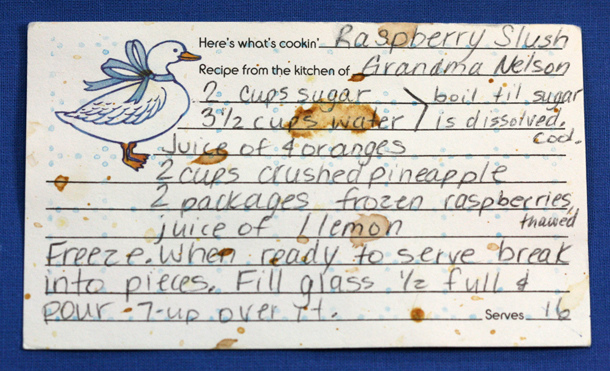 Here's what's cookin' Raspberry Slush
Recipe from the kitchen of Grandma Nelson
2 cups sugar > boil til sugar
3 1/2 cups water is dissolved.
Cool.
Juice of 4 oranges
2 cups crushed pineapple
2 packages frozen raspberries, thawed
juice of 1 lemon
Freeze. When ready to serve break
into pieces. Fill glass 1/2 full &
pour 7-up over it.
Serves 16